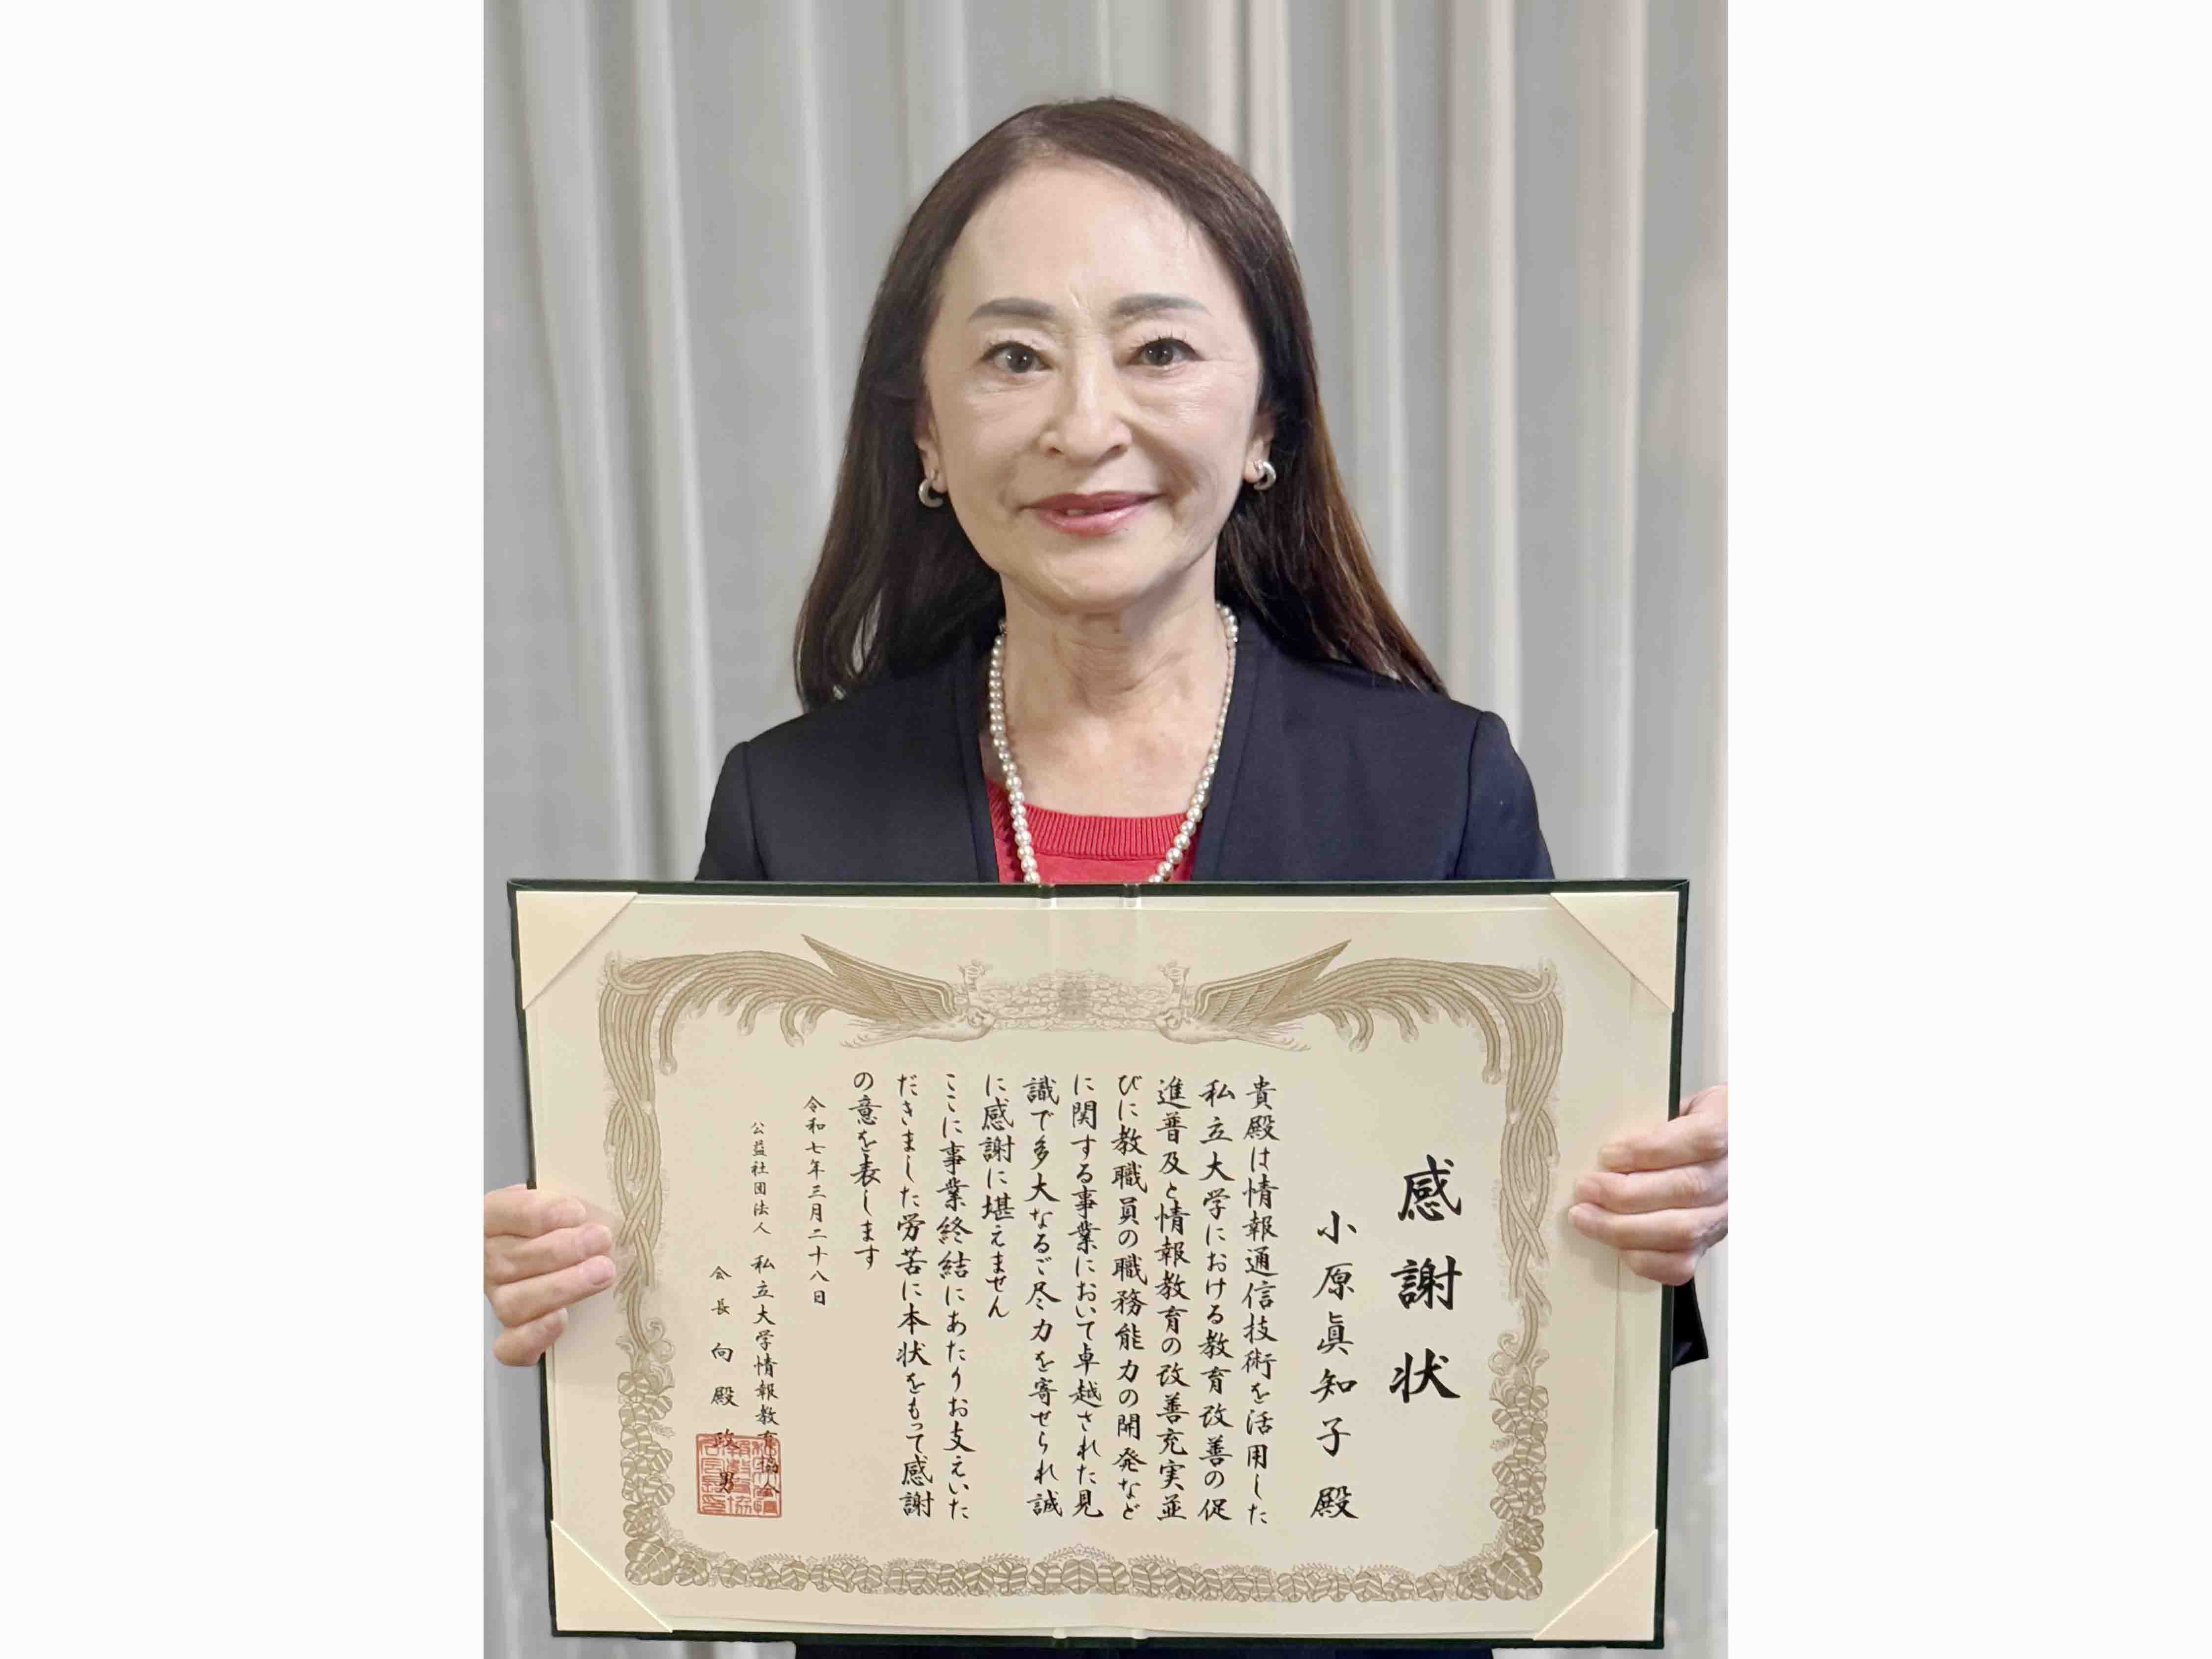 感謝状
小原眞知子 殿
貴殿は情報通信技術を活用した
私立大学における教育改善の促
進普及と情報教育の改善充実並
びに教職員の職務能力の開発など
に関する事業において卓越された見
識で多大なるご尽力を寄せられ誠
に感謝に堪えません
ここに事業終結にあたりお支えいた
だきました労苦に本状をもって感謝
の意を表します
令和七年三月二十八日
公益社団法人 私立大学情報教育協会
会長 向殿政男